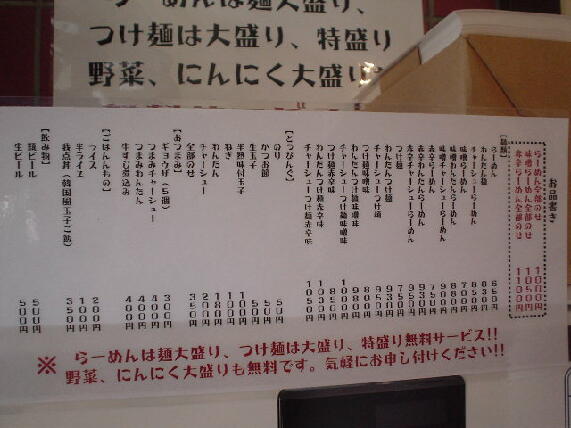 らーめんは麺大盛り、
つけ麺は大盛り、特盛り
野菜、にんにく大盛り
お品書き
らーめん全部のせ 1000円
味噌らーめん全部のせ 1100円
赤辛らーめん全部のせ 1100円
【麺類】
らーめん 650円
わんたん麺 830円
チャーシューらーめん 850円
味噌らーめん 700円
味噌わんたんらーめん 880円
味噌チャーシューらーめん 900円
赤辛らーめん 750円
赤辛わんたんらーめん 930円
赤辛チャーシューらーめん 950円
つけ麺 750円
わんたんつけ麺 930円
チャーシューつけ麺 950円
つけ麺味噌味 800円
わんたんつけ麺味噌味 980円
チャーシューつけ麺味噌味 1000円
つけ麺赤辛味 850円
わんたんつけ麺赤辛味 1030円
チャーシューつけ麺赤辛味 1050円
【とっぴんぐ】
のり 50円
かつお節 50円
生玉子 50円
半熟味付玉子 100円
ねぎ 100円
わんたん 180円
チャーシュー 200円
全部のせ 350円
【おつまみ】
ギョウザ(5個) 300円
つまみチャーシュー 400円
つまみわんたん 400円
牛すじ煮込み 400円
【ごはんもの】
ライス 200円
半ライス 100円
我点丼(韓国風玉子ご飯) 350円
【飲み物】
瓶ビール 500円
生ビール 500円
※ らーめんは麺大盛り、つけ麺は大盛り、特盛り無料サービス!!
野菜、にんにく大盛りも無料です。気軽にお申し付けください!!